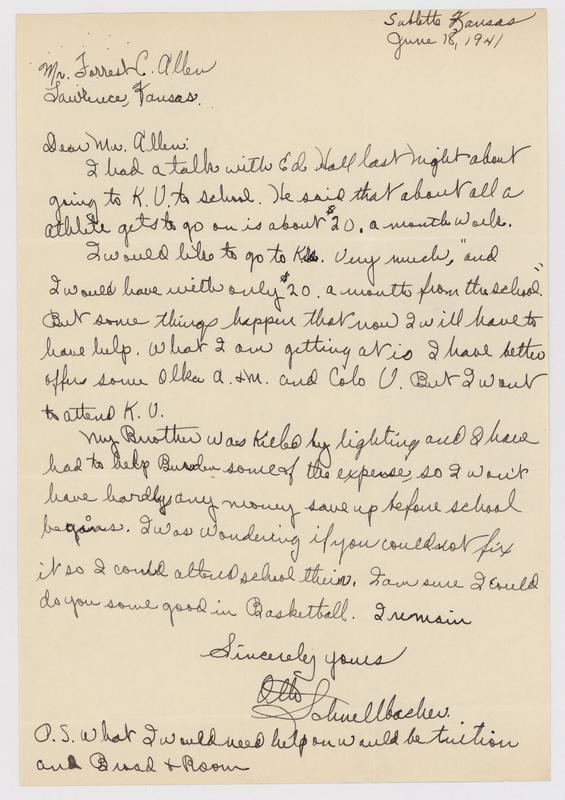 Sublette Kansas
June 18, 1941
Mr. Forrest C. Allen
Lawrence, Kansas.
Dear Mr. Allen:
I had a talk with Ed Hall last night about
going to K.U. to school. He said that about all a
athlete gets to go on is about $20. a month work.
I would like to go to Ks. very much, "and
I would have with only $20. a month from the school."
But some things happen that now I will have to
have help. What I am getting at is I have better
offers some Olka A. & M. and Colo U. But I want
to attend K.U.
My Brother was Killed by lighting and I have
had to help Burden some of the expense, so I won't
have hardly any money save up before school
begains. I was wondering if you could not fix
it so I could attend school their. I am sure I could
do you some good in Basketball. I remain
Sincerely yours
Otto Schnellbacher.
P.S. What I would need help on would be tuition
and Broad & Room